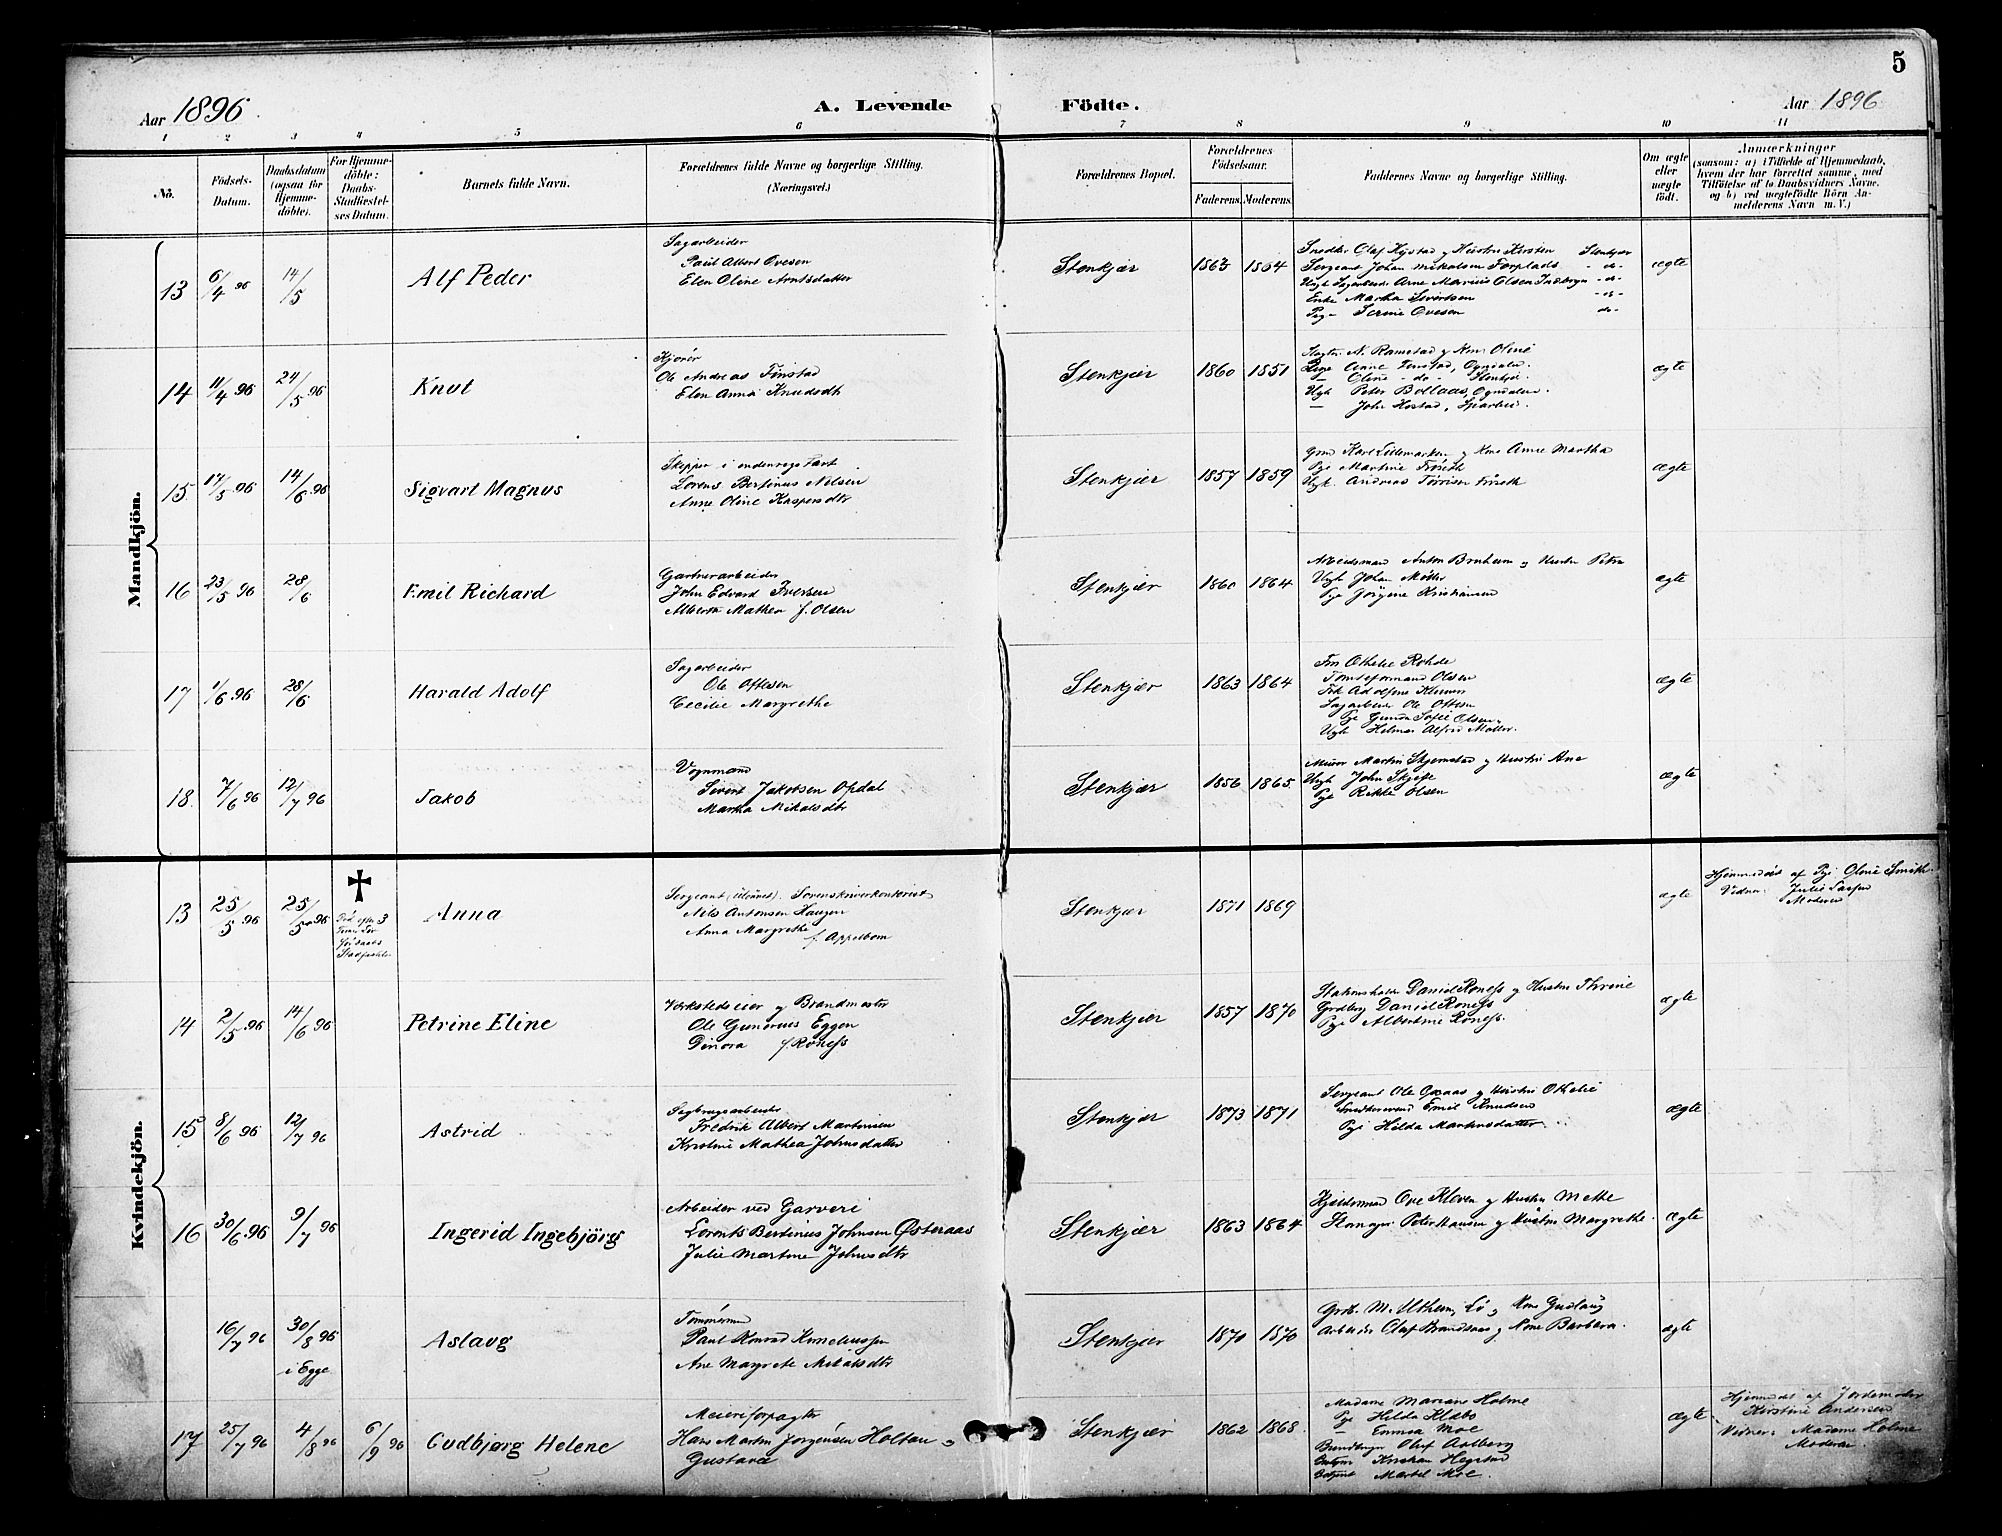 5
Aar 1896
A. Levende Födte.
Aar 1896
1 2 3 4 5 6 7 8 9 10 11
No.
Födsels-Datum.
Daabsdatum (ogsaa for Hjemme-döbte).
For Hjemme-döbte: Daabs-Stadfæstel-ses Datum.
Barnets fulde Navn.
Forældrenes fulde Navne og borgerlige Stilling.
(Næringsvei.)
Forældrenes Bopæl.
Forældrenes Födselsaar.
Faderens. Moderens.
Faddernes Navne og borgerlige Stilling.
Om ægte eller uægte födt.
Anmærkninger
(saasom: a) i Tilfælde af Hjemmedaab,
hvem der har forrettet samme, med
Tilföielse af to Daabsvidners Navne,
og b) ved uægtefödte Börn An-
melderens Navn m. V.)
Mandkjön.
13 6/4 96 14/5 Alf Peder
Sagarbeider
Paul Albert Ovesen
Elen Oline Arntsdatter
Stenkjær 1863 1864
Snedker Olaf Hystad og Hustru Kirsten Stenkjær
Sergeant Johan Mikalsen Forplads -do-
Ungk. Sagarbeider Arne Marius Olsen Inderøen -do-
Enke Martha Sivertsen -do-
Pige Serine Ovesen do-
ægte
14 11/4 96 24/5 96 Knut
Kjører
Ole Andreas Tønstad
Elen Anna Knudsdtr
Stenkjær 1860 1851
N. Ramstad og Kone Oline
Pige Anne Tønstad, Ogndalen
- Oline -do- Stenkjær
Ungk Peter Bollaas, Ogndalen.
— John Hostad, Sparbu.
ægte
15 17/5 96 14/6 96 Sigvart Magnus
Skipper i indenrigs Fart
Lorens Bertinus Nilsen
Anne Oline Kaspersdtr
Stenkjær 1857 1859
Karl og Kone Anne Martha
Pige Martine Frøseth
Ungk. Andreas Frøseth
ægte
16 23/5 96 28/6 Emil Richard
Gartnerarbeider
John Edvard Iversen
Albertn Mathea f. Olsen
Stenkjær 1860 1864
Arbeidsmand Anton Bruheim og Hustru Petra
Ungk Johan Møller
Pige Jørgine Kristiansen
ægte
17 1/6 96 28/6 Harald Adolf
Sagarbeider
Ole Oftesen
Cecilie Margrethe
Stenkjær 1863 1864
Fru Othelie Rohde
Tomteformand Olsen
Frk Adolfine Klüwer
Sagarbeider Ole Oftesen
Pige Gunda Sofie Olsen
Ungk Helmer Alfred Møller.
ægte
18. 7/6 96 12/7 96 Jakob
Vognmand
Sivert Jakobsen Opdal
Martha Mikalsdtr
Stenkjær 1856 1865.
Murer Martin Skjerstad og Hustru Ane
Ungk John Skjefte
Pige Rikke Olsen
ægte
Kvindekjön.
13 25/5 96 25/5 96
✝
Død efter 3
Timer før
Stadfæstelse
Anna
Sergeant Sorenskriverkontorist
Nils Antonsen Haugen
Anna Margrethe f. Appelbom
Stenkjær 1871 1869
ægte
Hjemmedøbt af Pige Oline Smith.
Vidner: Julie
Moderen
14 2/5 96 14/6 96 Petrine Eline
Verkstedseier og Brandmester
Ole Gunerius Eggen
Dinora f. Roness
Stenkjær 1857 1870
Stationsholder Daniel Roness og Hustru Thrine
Daniel Roness
Pige Albertine Roness.
ægte
15 8/6 96 12/7 96 Astrid
Sagbrugsarbeider
Fredrik Albert Martinsen
Kristine Mathea Johnsdatter
Stenkjær 1873 1871
Sergeant Ole Opaas og Hustru Othelie
Snedkersvend Emil Knudsen
Pige Hilda Martinsdatter
ægte
16 30/6 96 9/7 96 Ingerid Ingebjörg
Arbeider ved Garveri
Lorents Bertinius Johnsen Østeraas
Julie Martine Johnsdtr
Stenkjær 1863 1864
Ove Kleven og Hustru Mette
Peter Hansen og Hustru Margrethe.
ægte
16/7 96 30/8 96 i Egge Aslaug
Tømmermand
Paul Konrad Korneliussen
Ane Margrete Mikalsdtr
Stenkjær 1870 1870
Grdb. M. Utheim, Lø og Kone Gudlaug
Arbeider Olaf Brandsaas og Kone Barbera.
ægte
17 25/7 96 4/8 96 6/9 96 Gudbjørg Helene
Meieriforpagter
Hans Martin Jorgensen Holtan og
Gustava
Stenkjær 1862 1868.
Madame Mariane Holme
Pige Hilda Klæbo
— Emma Moe
Olaf Aalberg
Kristian Hegstad
Martel Moe.
ægte
Hjemmedøbt af Jordemoder
Kirstine Andersen
Vidner: Madame Holme
Moderen